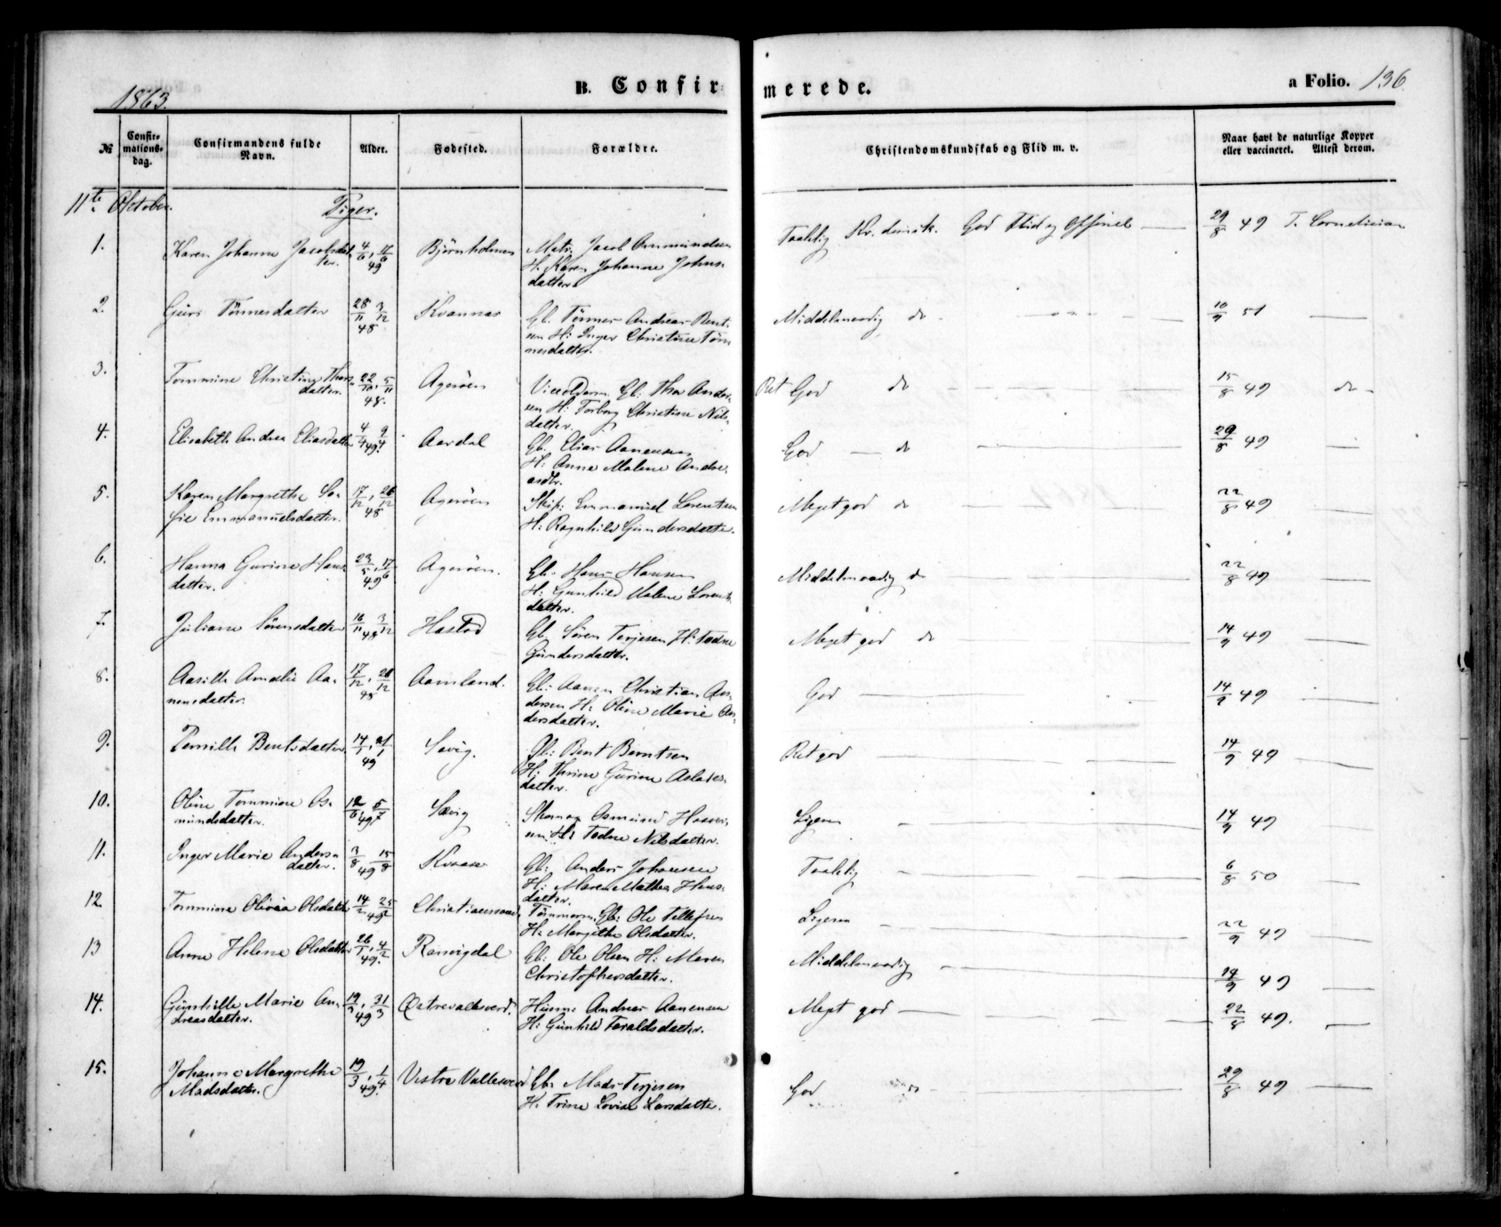 B. Confirmerede.
a Folio. 136.
1863.
№ Confirmationsdag. Confirmandens fulde Navn. Alder. Fødested. Forældre. Christendomskundskab og Flid m. v. Naar havt de naturlige Kopper eller vaccineret. Attest derom.
11te October. Piger.
1. Karen Johanne Jacobsdatter. 4/6, 17/6 49 Björnholmen Jacob Anmundsen H. Karen Johanne Johnsdatter. Taalelig God Flid og Opförsel 29/8 49 T. Cornelisian
2. Guri Tönnesdatter 28/11 3/12 48 Kvannes Gb. Tönnes Andreas Bentsen H: Inger Christine Tönnesdatter. Middelmaadig do 10/9 51
3. Tommine Christine Thorsdatter. 22/10, 5/11 48. Agerøen Gb: Thor Andersen H: Torborg Christine Nilsdatter. Ret God do 15/8 49 do
4. Elisabeth Andrea Eliasdatter 4/4 9/4 49. Aardal Gb. Elias Aanensen H. Anne Malene Andreasdtr. God do 29/8 49
5. Karen Margrethe Sofie Emmanuelsdatter. 17/12, 26/12 48 Agerøen Skip: Emmanuel Lorentsen H: Ragnhild Gundersdatter. Meget god do 22/8 49
6. Hanna Gurine Hansdatter. 23/5, 17/6 49 Agerøen. Gb. Hans Hansen H: Gunhild Malene Lorentsdatter. Middelmaadig do 22/8 49
7. Juliane Sörensdatter 16/11 3/12 48 Hastad Gb Sören Terjesen H: Todne Gundersdatter. Meget god do 14/9 49
8. Aasille Amalie Aanensdatter. 17/12, 26/12 48 Aamland. Gb: Aanen Christian Andersen H: Oline Marie Andersdatter. God 14/9 49
9. Pernille Bentsdatter. 14/1, 21/1 49 Sævig. Gb: Bent Berntsen H: Thrine Gurine Aslaksdatter. Ret god 14/9 49
10. Oline Tommine Osmundsdatter. 12/6, 5/7 49 Sævig Osmund H: Todne Nilsdatter. Ligesaa 14/9 49
11. Inger Marie Andersdatter. 3/8 15/8 49 Kvaase Gb: Anders Johannesen H: Maren Mathea Hansdatter. Taalelig 6/8 50
12. Tommine Olivia Olsdatter 14/2 25/2 49 Christianssand Tömmerm. Gb: Ole Tellefsen H: Margithe Olsdatter. Ligesaa 22/9 49
13 Anne Helene Olsdatter 26/1, 4/2 49. Rannigdal Gb: Ole Olsen H: Maren Christophersdatter. Middelmaadig 14/9 49
14. Gunhille Marie Andreasdatter. 19/3, 31/3 49 Østrevallesverd. Huusm. Andreas Aanensen H: Gunhild Taraldsdatter. Meget god 22/8 49.
15. Johanne Margrethe Madsdatter. 19/3, 1/4 49. Vestre Vallesverd Gb: Mads Terjesen H. Trine Lovise Larsdatter. God 29/8 49